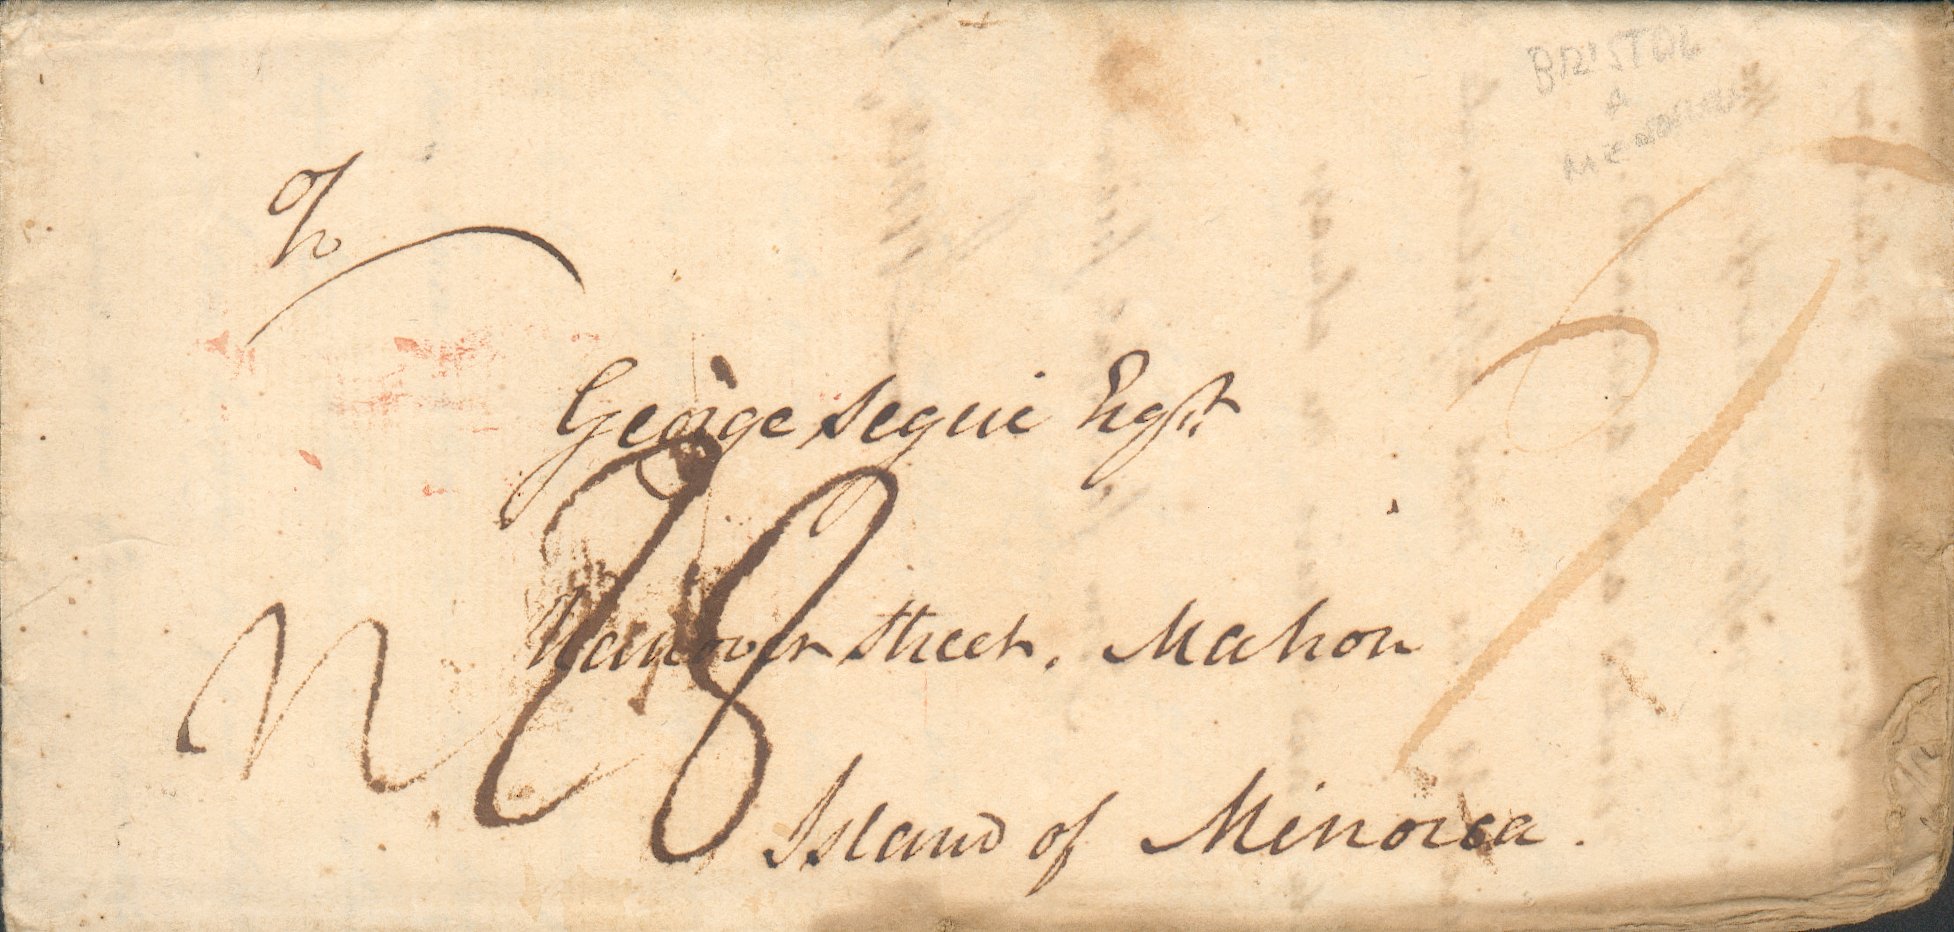 BRISTOL
A
George Segui Esqr.
Hanover Street, Mahon
Island of Minorca.